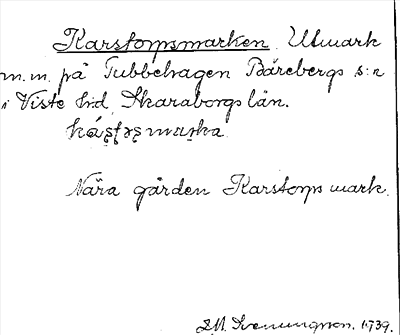 Karstorpsmarken. Utmark
m.m. på Tubbehagen Bärebergs s:n
i Viste hd. Skaraborgs län.
Nära gården Karstorps mark.
S.M. Svenungson. 1939.